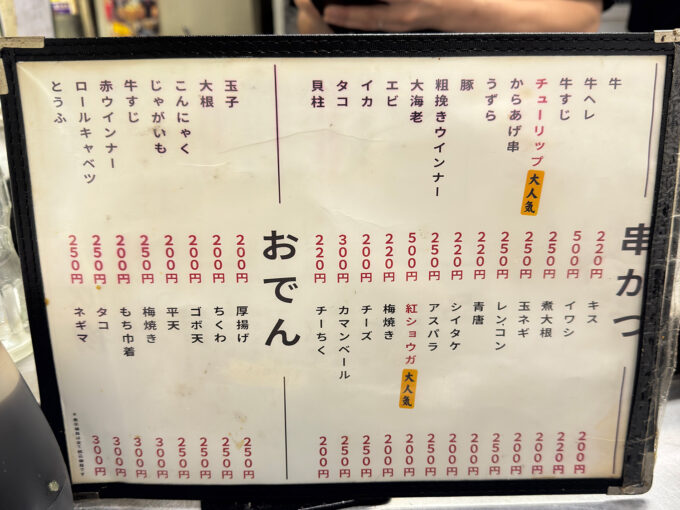 串かつ
牛 220円
牛ヘレ 500円
牛すじ 250円
チューリップ 大人気 250円
からあげ串 250円
うずら 220円
豚 220円
粗挽きウインナー 250円
大海老 500円
エビ 220円
イカ 220円
タコ 300円
貝柱 220円
キス 200円
イワシ 220円
煮大根 200円
玉ネギ 200円
レンコン 200円
青唐 200円
シイタケ 200円
アスパラ 250円
紅ショウガ 大人気 200円
梅焼き 200円
チーズ 250円
カマンベール 250円
チーちく 200円
おでん
玉子 200円
大根 200円
こんにゃく 200円
じゃがいも 200円
牛すじ 250円
赤ウインナー 200円
ロールキャベツ 250円
とうふ 250円
厚揚げ 250円
ちくわ 250円
ゴボ天 250円
平天 250円
梅焼き 300円
もち巾着 300円
タコ 300円
ネギマ 300円